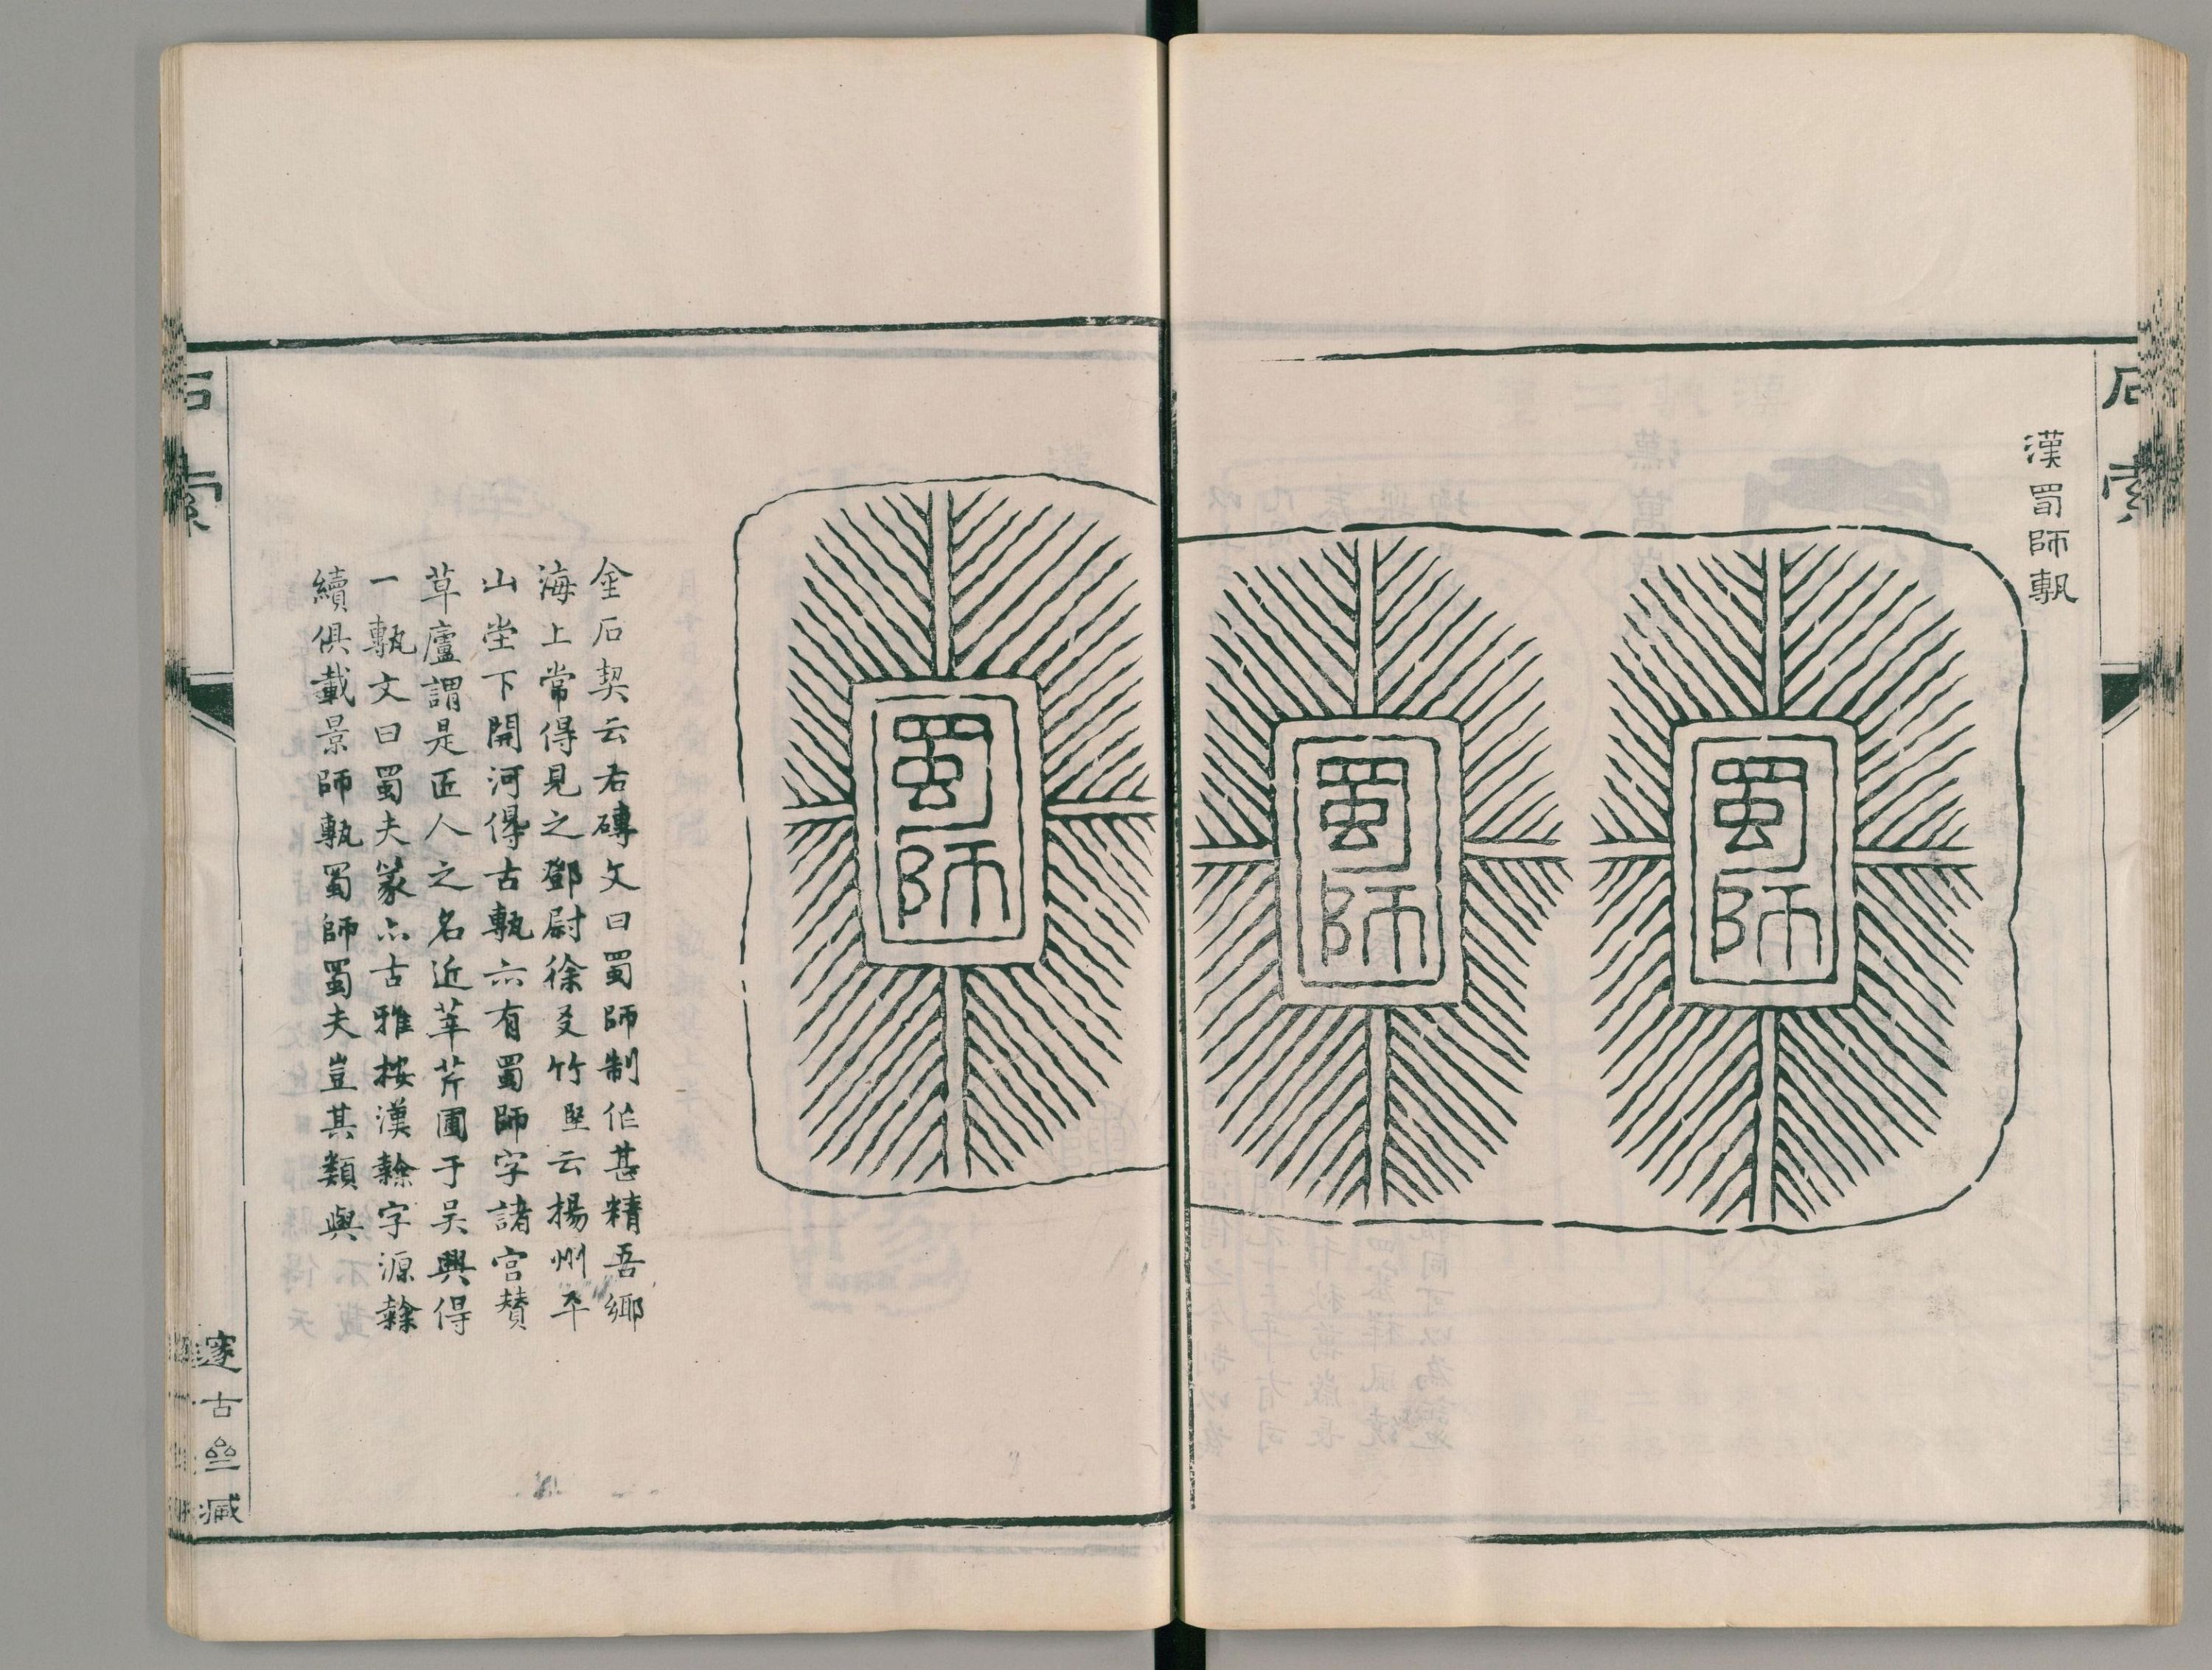 石索
漢蜀師甎
蜀師
蜀師
蜀師
金石契云右磚文曰蜀師制作甚精吾鄉
海上常得見之鄧尉徐友竹堅云揚州平
山堂下開河得古甎亦有蜀師字諸宮贊
草廬謂是匠人之名近莘芹圃于吴興得
一甎文曰蜀夫篆亦古雅按漢隸字源隸
續俱載景師甎蜀師蜀夫豈其類與
石索
邃古齋藏